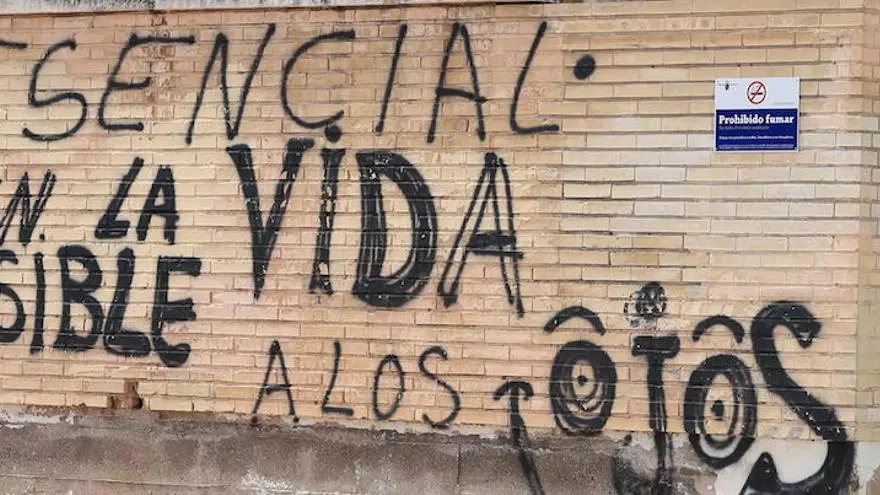 ESENCIAL.
EN LA VIDA
SIBLE
A LOS
OJOS
Prohibido fumar